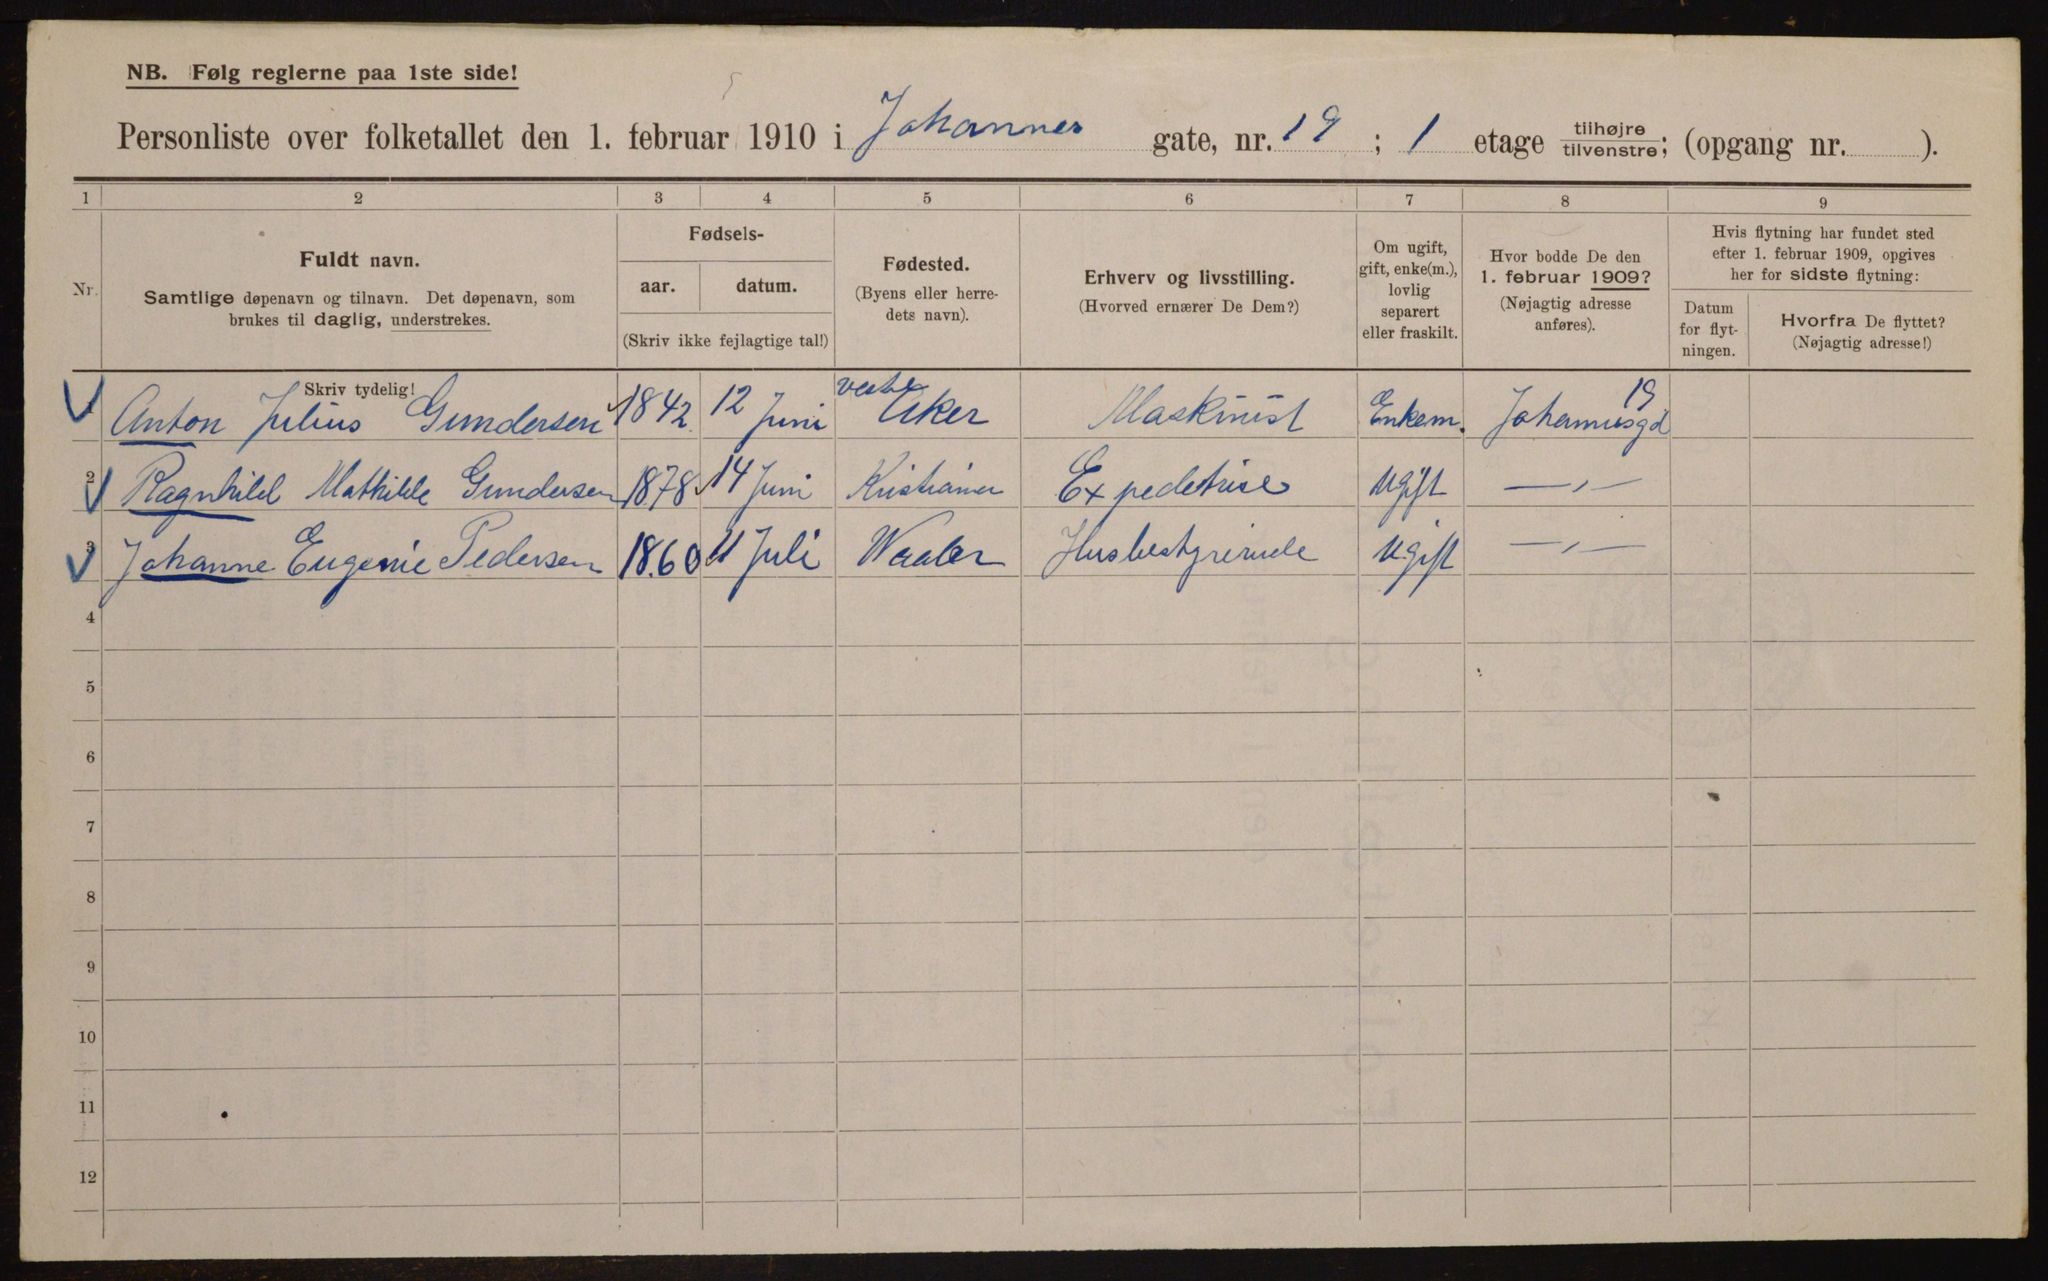 NB. Følg reglerne paa 1ste side!
Personliste over folketallet den 1. februar 1910 i Johannes gate, nr. 19 ; 1 etage tilhøjre tilvenstre; (opgang nr. ).
1 2 3 4 5 6 7 8 9
Nr.
Fuldt navn.
Samtlige døpenavn og tilnavn. Det døpenavn, som
brukes til daglig, understrekes.
Fødsels-
aar. datum.
(Skriv ikke fejlagtige tal!)
Fødested.
(Byens eller herre-
dets navn).
Erhverv og livsstilling.
(Hvorved ernærer De Dem?)
Om ugift,
gift, enke(m.),
lovlig
separert
eller fraskilt.
Hvor bodde De den
1. februar 1909?
(Nøjagtig adresse
anføres).
Hvis flytning har fundet sted
efter 1. februar 1909, opgives
her for sidste flytning:
Datum
for flyt-
ningen.
Hvorfra De flyttet?
(Nøjagtig adresse!)
Skriv tydelig!
1 Anton Julius Gundersen 1842 12 Juni vestre Aker Maskinist Enkem. Johannesgd 19
2 Ragnhild Mathilde Gundersen 1878 14 Juni Kristiania Expeditrise Ugift —〃—
3 Johanne Eugenie Pedersen 1860 11 Juli Waaler Husbestyrerinde Ugift —〃—
4
5
6
7
8
9
10
11
12